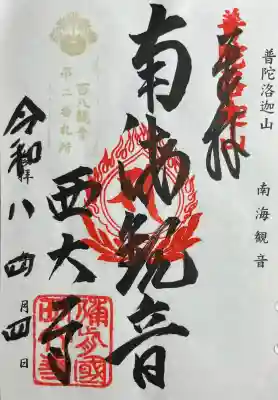 普陀洛迦山
南海観音
奉拝
南海観音
西大寺
百八観音
第二番札所
令和八年四月四日
拝
備前國